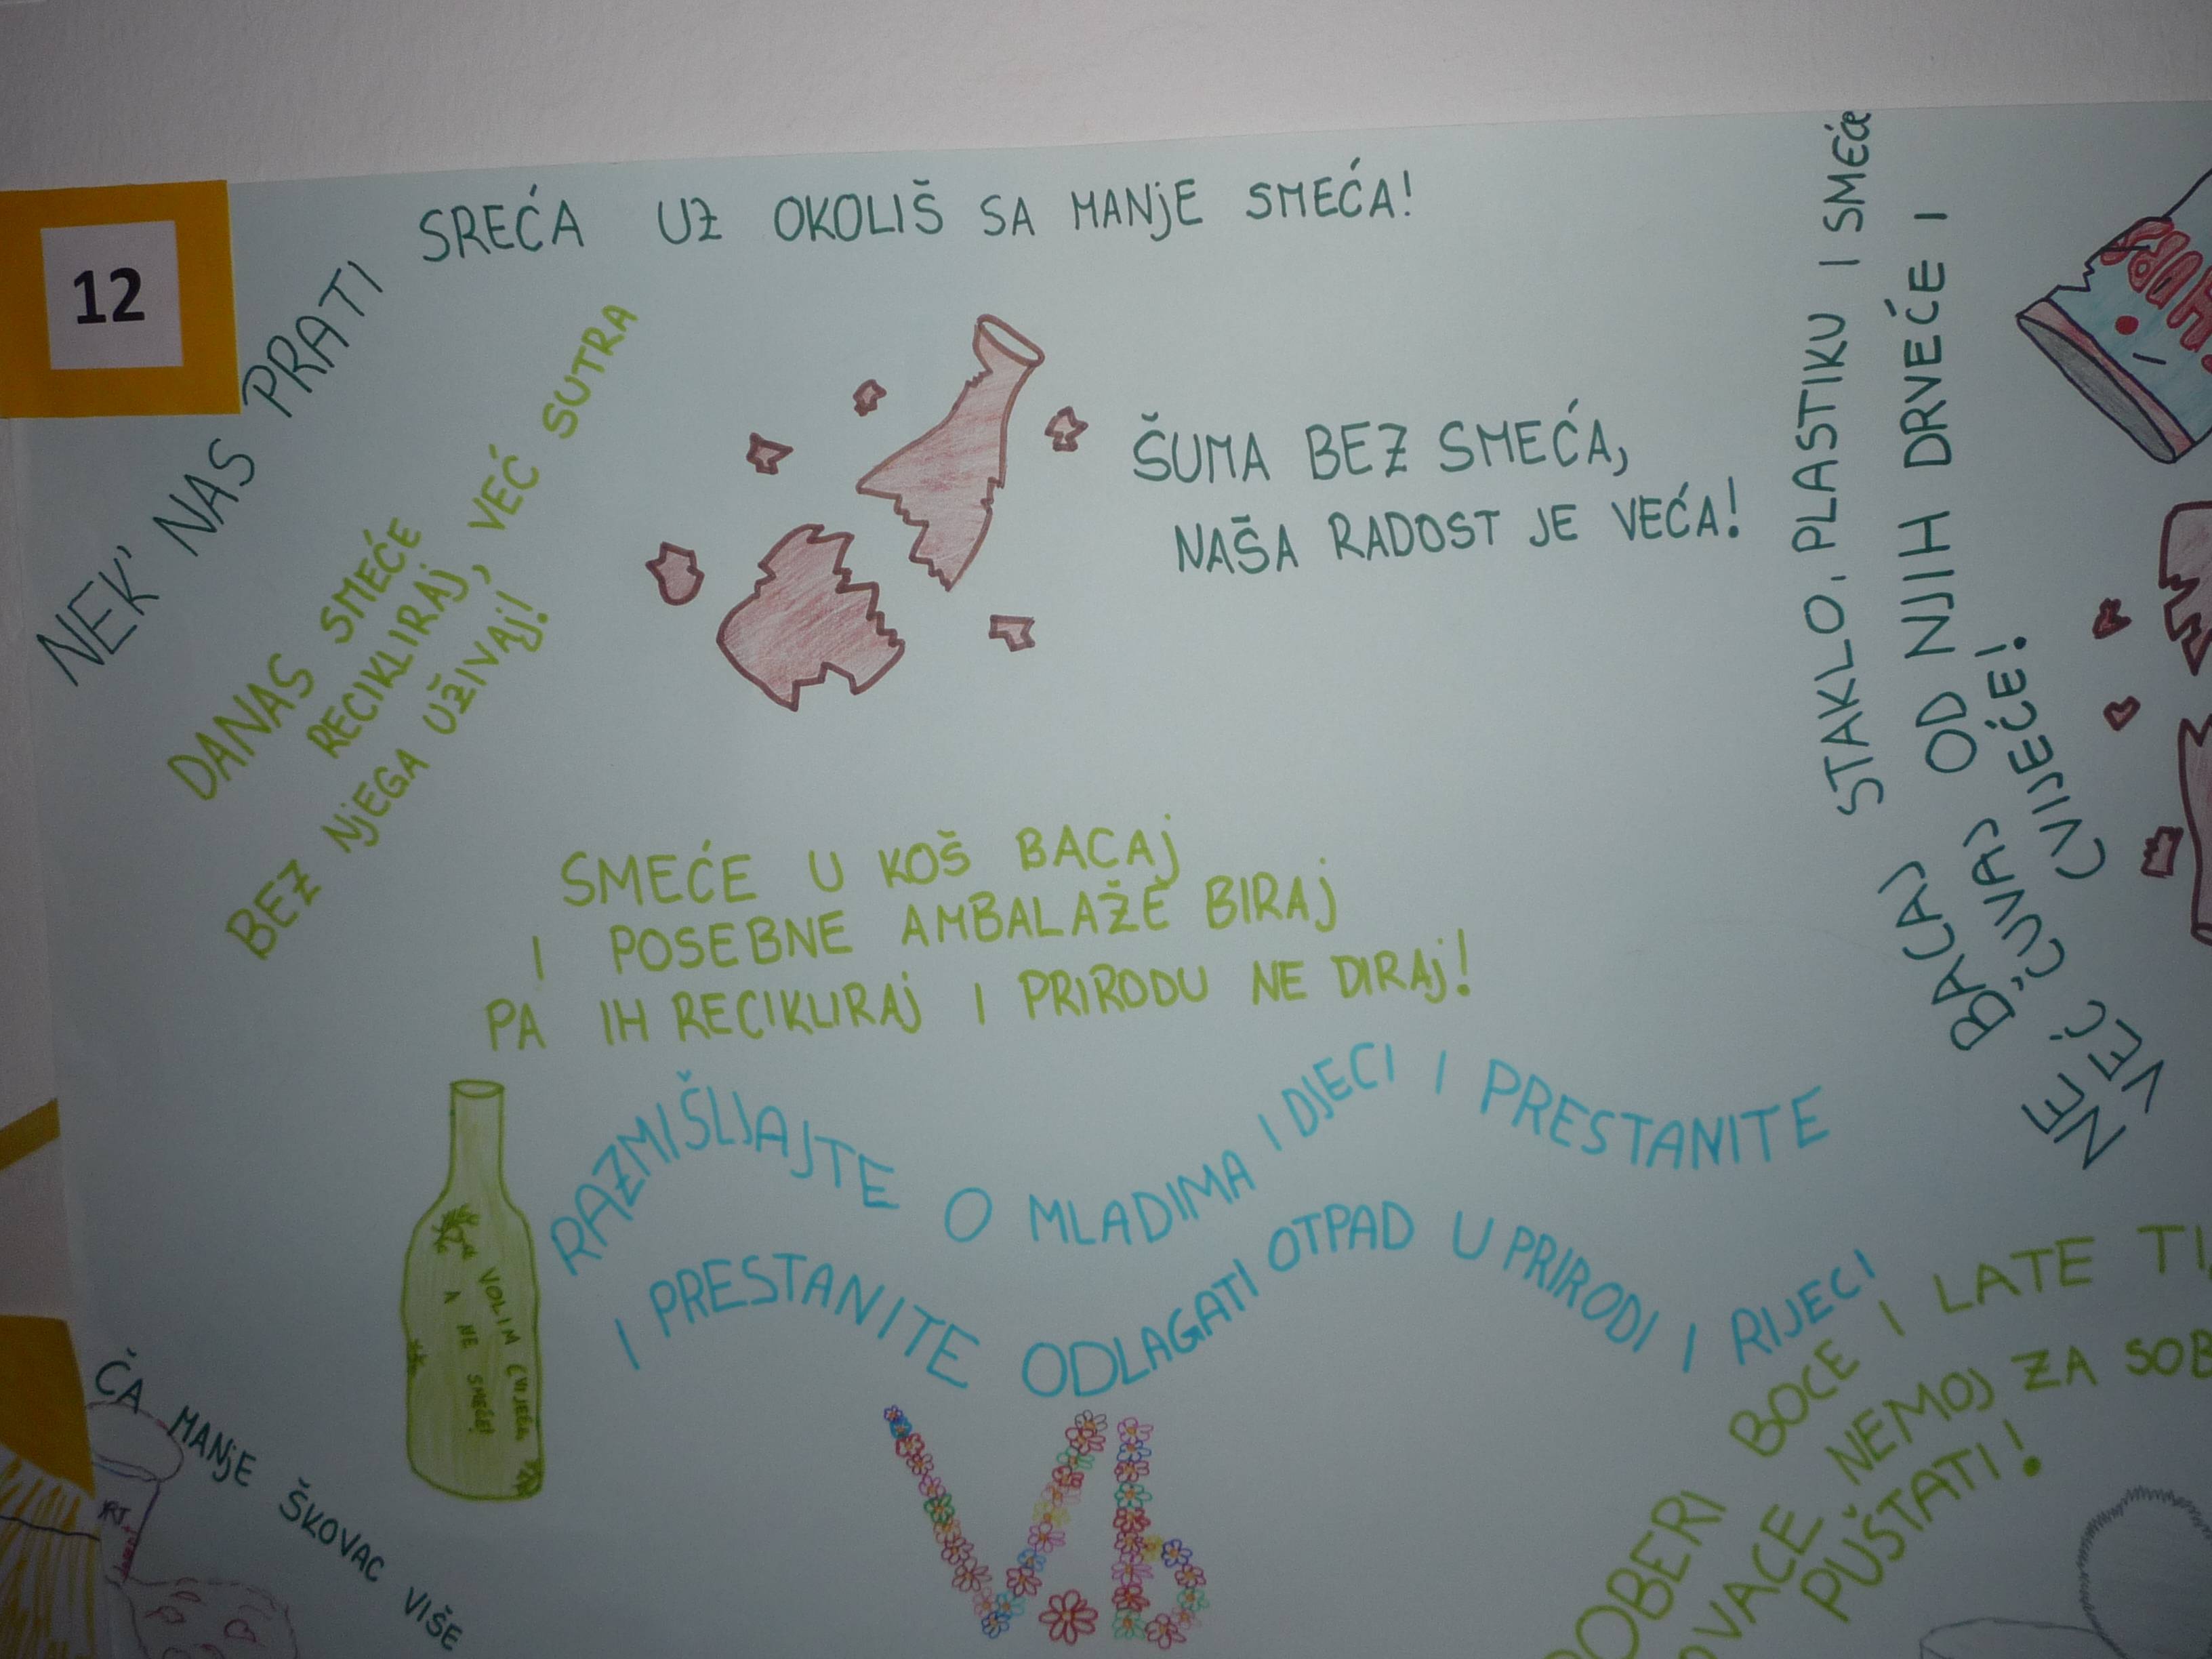 12
NEK' NAS PRATI SREĆA UZ OKOLIŠ SA MANJE SMEĆA!
DANAS SMEĆE
RECIKLIRAJ, VEĆ SUTRA
BEZ NJEGA UŽIVAJ!
ŠUMA BEZ SMEĆA,
NAŠA RADOST JE VEĆA!
NE BACAJ STAKLO, PLASTIKU I SMEĆE
VEĆ ČUVAJ OD NJIH DRVEĆE I
CVIJEĆE!
SMEĆE U KOŠ BACAJ
I POSEBNE AMBALAŽE BIRAJ
PA IH RECIKLIRAJ I PRIRODU NE DIRAJ!
RAZMIŠLJAJTE O MLADIMA I DJECI I PRESTANITE
I PRESTANITE ODLAGATI OTPAD U PRIRODI I RIJECI
VOLIM CVIJEĆE
A NE SMEĆE!
BOCE I LATE TI
NEMOJ ZA SOB
PUŠTATI!
ČA MANJE ŠKOVAC VIŠE
V.b